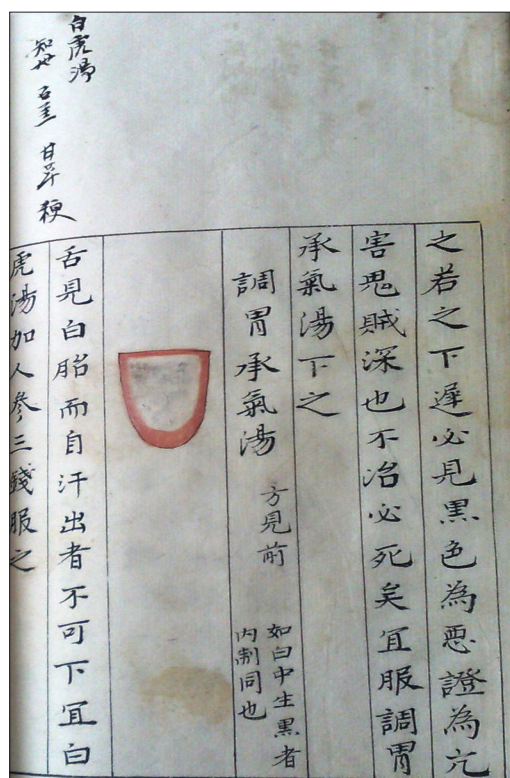 白虎湯
知母 石羔 甘草 粳
之若之下遲必見黑色為惡證為亢
害鬼賊深也不治必死矣宜服調胃
承氣湯下之
調胃承氣湯 方見前
如白中生黑者
內制同也
舌見白胎而自汗出者不可下宜白
虎湯加人參三錢服之